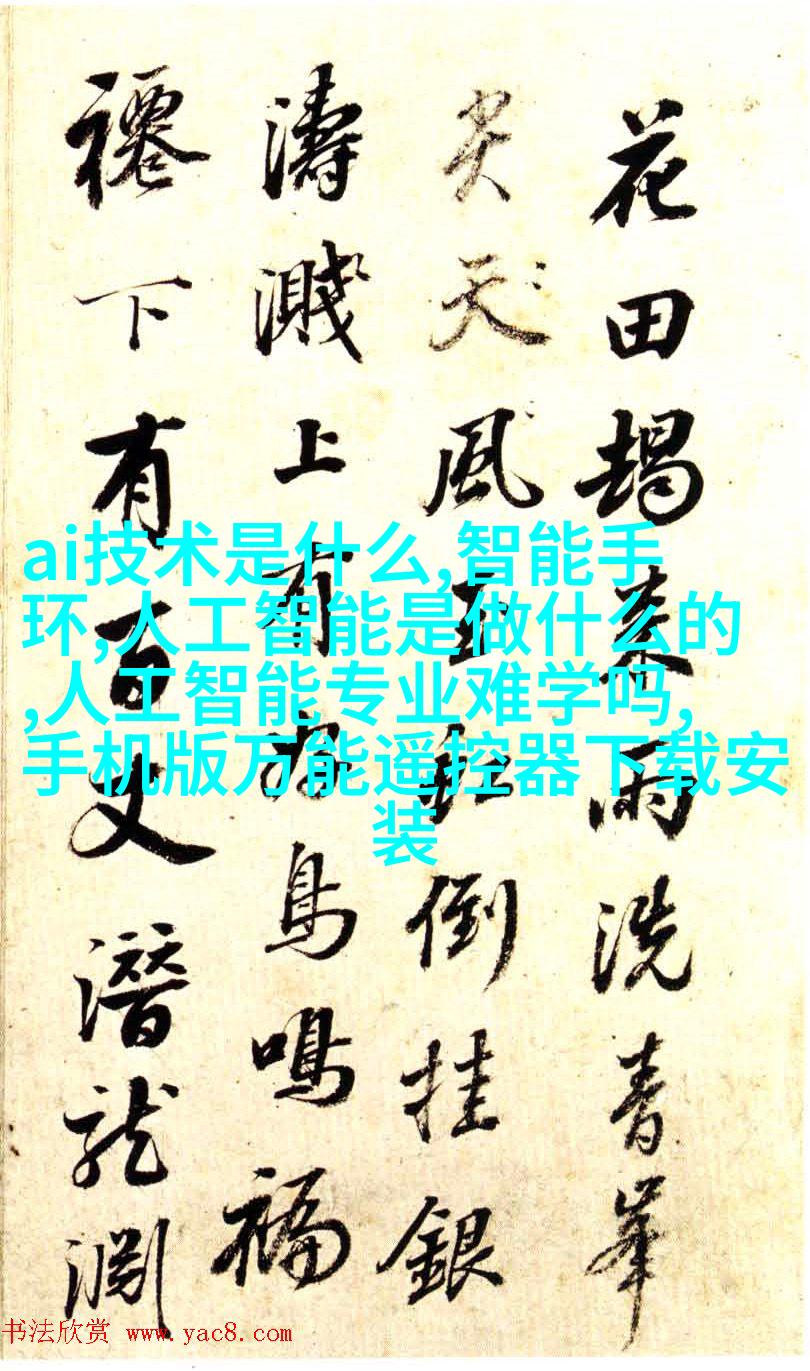 花田揭暮雨洗青峯
炎天風玉虹倒挂銀
濤濺上有珍鳥鳴福
禪下有百丈潛龍淵
ai技术是什么,智能手
环,人工智能是做什么的
,人工智能专业难学吗,
手机版万能遥控器下载安
装
书法欣赏 www.yac8.com